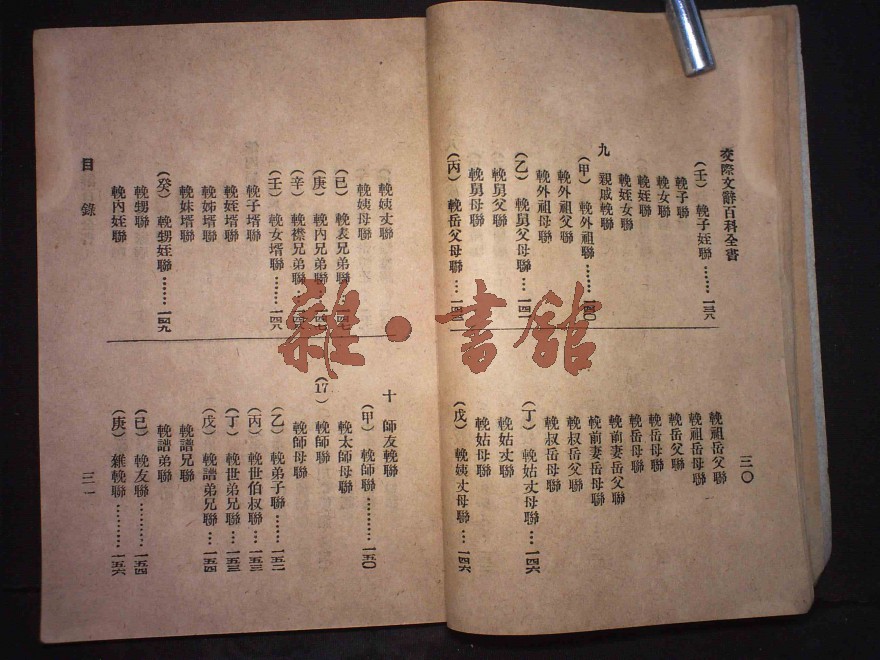 交際文辭百科全書
(壬) 輓子姪聯……一三八
輓子聯
輓女聯
輓姪聯
輓姪女聯
九 親戚輓聯
(甲) 輓外祖聯……一四〇
輓外祖父聯
輓外祖母聯
(乙) 輓舅父母聯…一四一
輓舅父聯
輓舅母聯
(丙) 輓岳父母聯…一四二
三〇
輓祖岳父聯
輓祖岳母聯
輓岳父聯
輓岳母聯
輓岳母聯
輓前妻岳父聯
輓前妻岳母聯
輓叔岳父聯
輓叔岳母聯
(丁) 輓姑丈母聯…一四六
輓姑丈聯
輓姑母聯
(戊) 輓姨丈母聯…一四六
輓姨丈聯
輓姨母聯
(已) 輓表兄弟聯…一四七
(庚) 輓內兄弟聯…一四七
(辛) 輓襟兄弟聯…一四八
(壬) 輓女壻聯……一四八
輓子壻聯
輓姪壻聯
輓姊壻聯
輓妹壻聯
(癸) 輓甥姪聯……一四九
輓甥聯
輓內姪聯
目錄
十 師友輓聯
(甲) 輓師聯………一五〇
輓太師母聯
(17) 輓師聯
輓師母聯
(乙) 輓弟子聯……一五二
(丙) 輓世伯叔聯…一五三
(丁) 輓世弟兄聯…一五三
(戊) 輓譜弟兄聯…一五四
輓譜兄聯
輓譜弟聯
(已) 輓友聯………一五四
(庚) 雜輓聯………一五六
三一
雜·書館